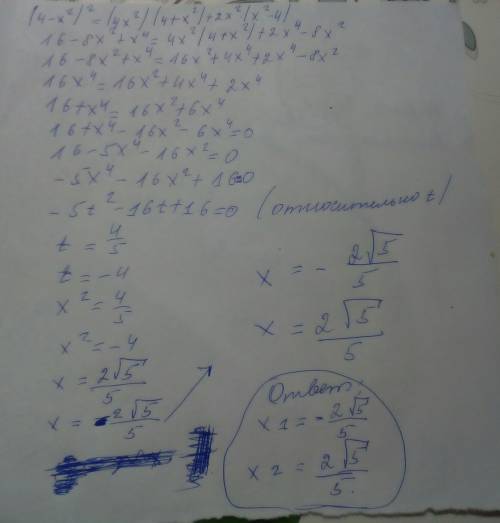 (4-x²)² = (4x²)(4+x²)+2x²(x²-4)
16-8x²+x⁴ = 4x²(4+x²)+2x⁴-8x²
16-8x²+x⁴ = 16x²+4x⁴+2x⁴-8x²
16x⁴ = 16x²+4x⁴+2x⁴
16+x⁴ = 16x²+6x⁴
16+x⁴-16x²-6x⁴=0
16-5x⁴-16x²=0
-5x⁴-16x²+16=0
-5t²-16t+16=0 (относительно t)
t = 4/5
t = -4
x² = 4/5
x² = -4
x = 2√5/5
x = -2√5/5
x = - 2√5/5
x = 2√5/5
Ответ:
x1 = -2√5/5
x2 = 2√5/5.